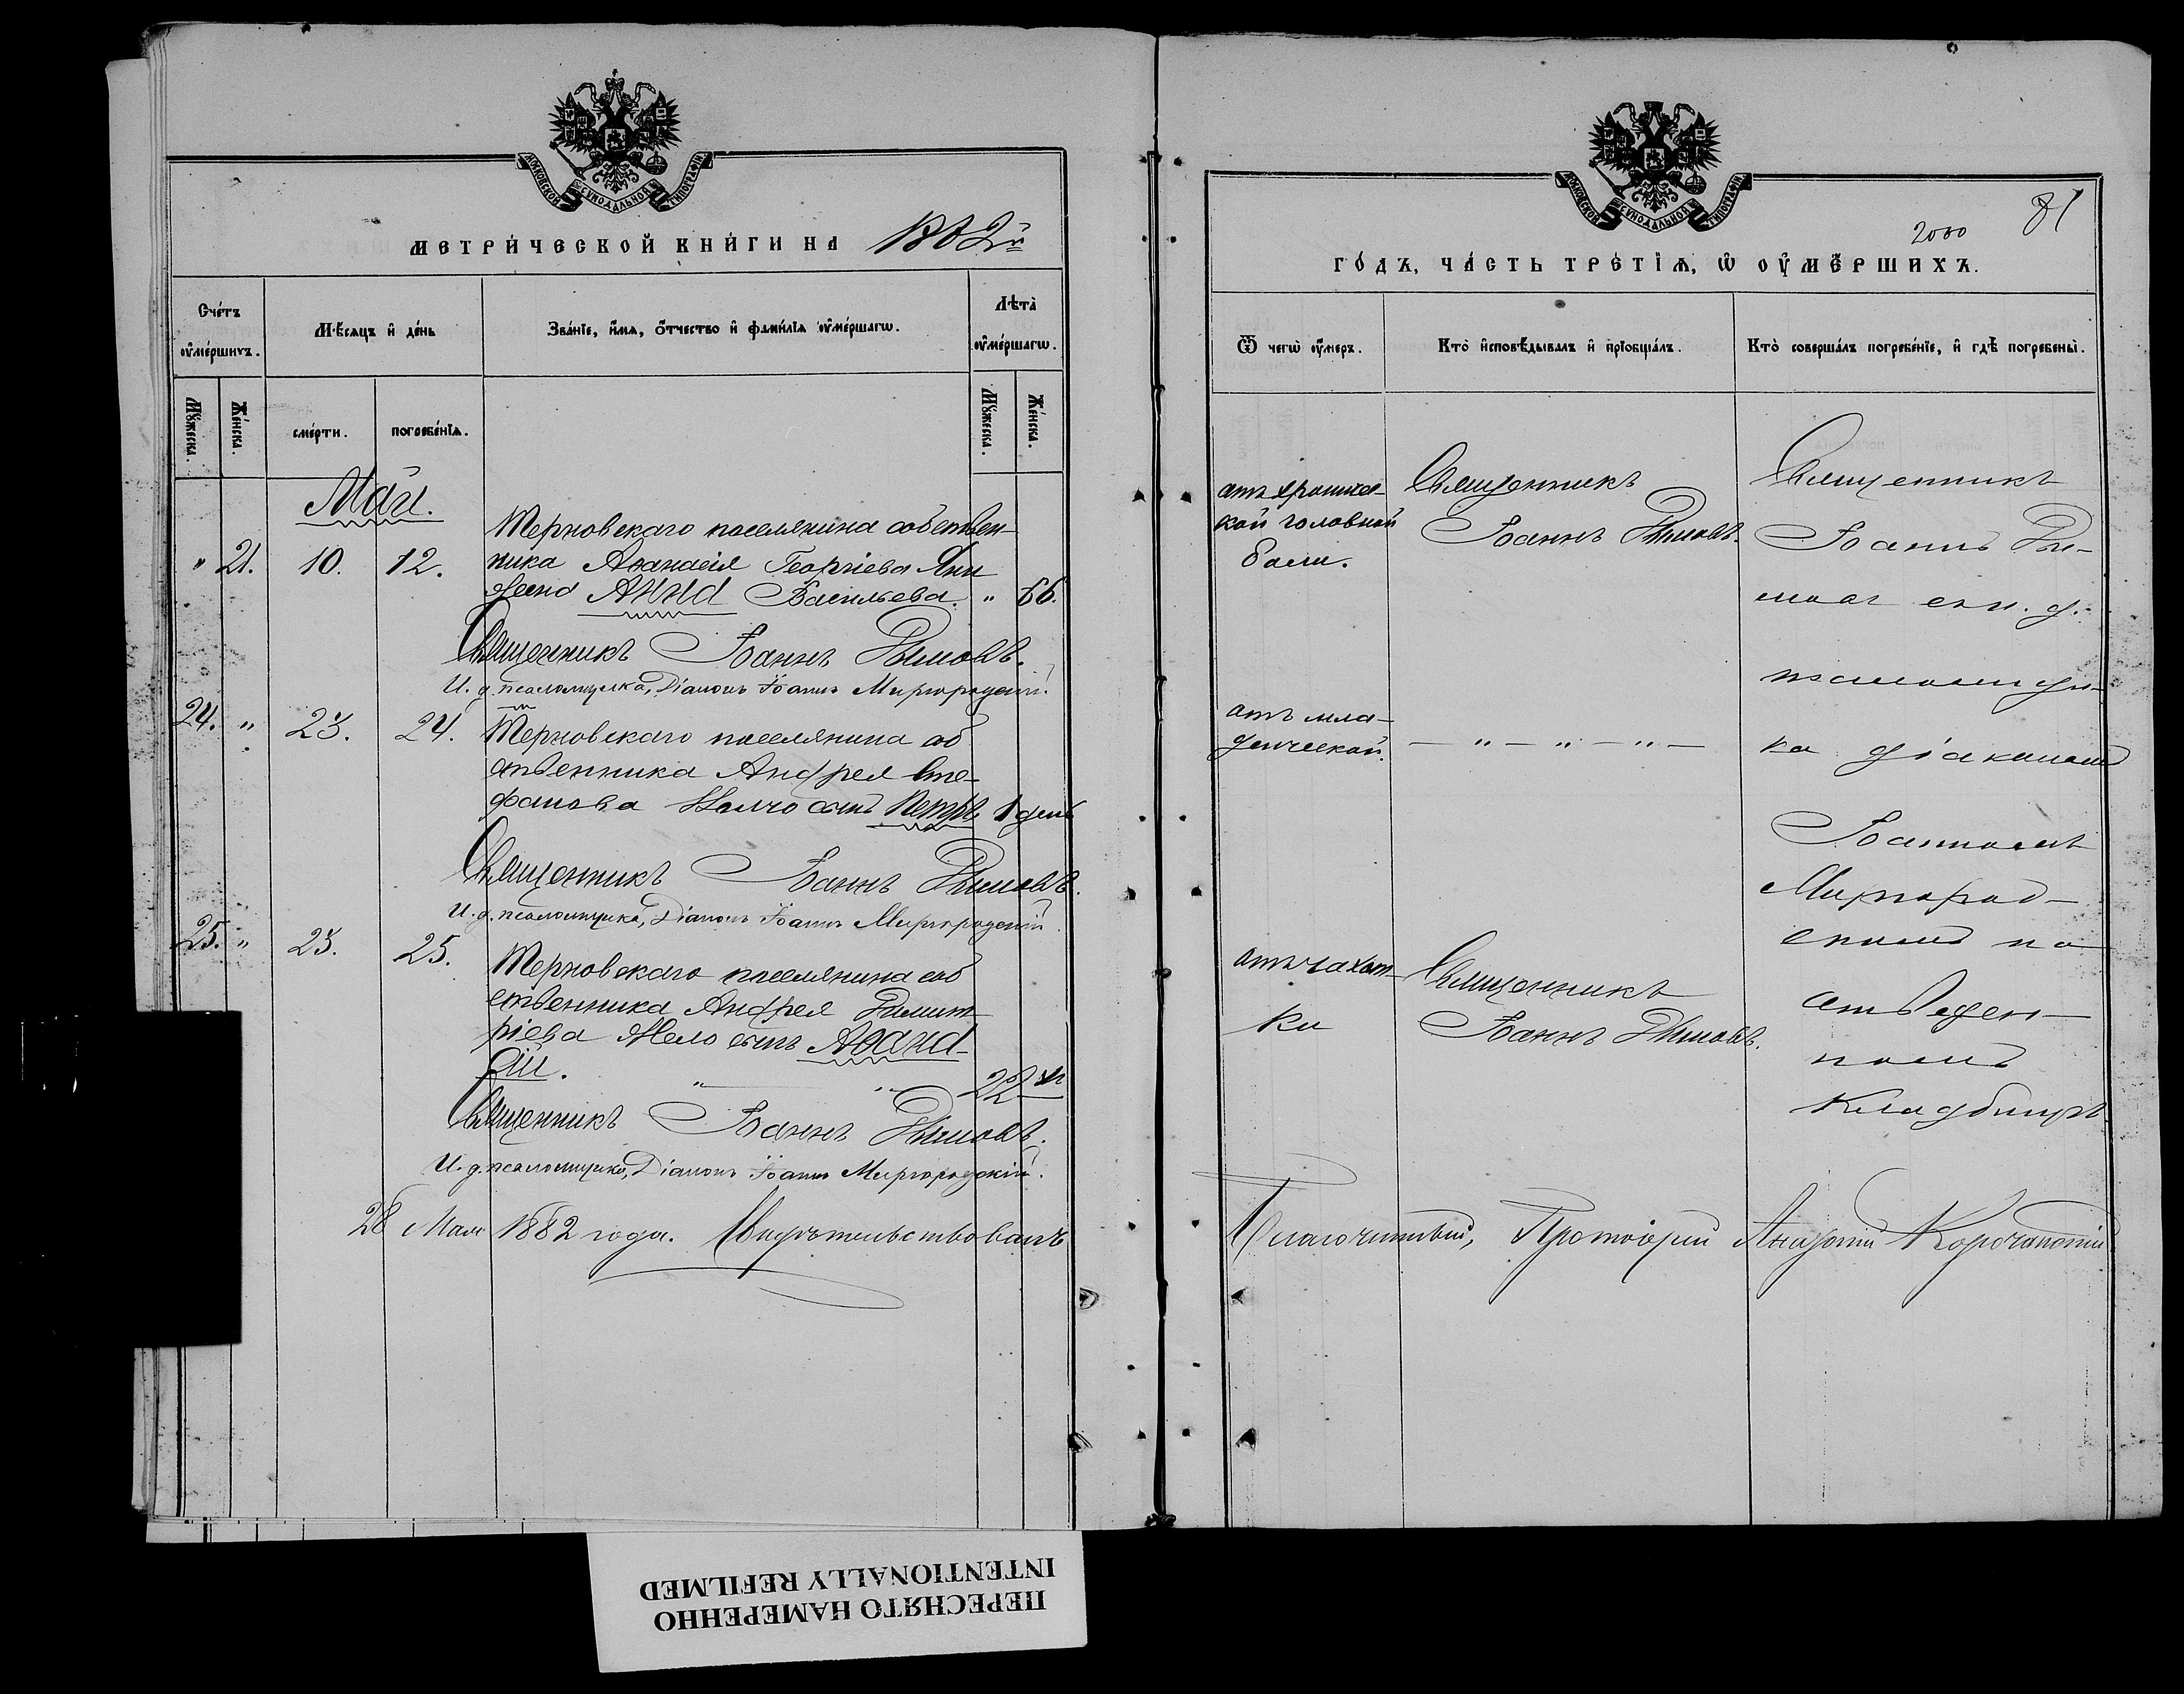 МОСКОВСКОЙ СУНОДАЛЬНОЙ ТИПОГРАФІИ
МЕТРИ́ЧЕСКОЙ КНИ́ГИ НА 1882й
Сче́тъ ᲂу҆ме́ршихъ.
Мѣ́сяцъ и҆ де́нь
Зва́нїе, и҆́мѧ, ѻ҆́тчество и҆ фами́лїѧ ᲂу҆ме́ршагѡ.
Лѣ́та ᲂу҆ме́ршагѡ.
Мꙋ́жеска.
Же́нска.
сме́рти.
погребе́нїѧ.
Мꙋ́жеска.
Же́нска.
Май.
Терновскаго поселянина собствен-
" 21. 10. 12. ника Аѳанасія Георгіева Яни
жена Анна Васильева. " 66.
Священникъ Іоаннъ Дымовъ.
И. д. псаломщика, Діаконъ Іоаннъ Миргородскій.
24. " 23. 24. Терновскаго поселянина соб
ственника Андрея Сте-
фанова сынъ Петръ 1 день
Священникъ Іоаннъ Дымовъ.
И. д. псаломщика, Діаконъ Іоаннъ Миргородскій.
25. " 23. 25. Терновскаго поселянина соб
ственника Андрея Димит
ріева сынъ Аѳана-
сій. " " 22
Священникъ Іоаннъ Дымовъ.
И. д. псаломщика, Діаконъ Іоаннъ Миргородскій.
28 Мая 1882 года. Свидѣтельствовалъ
МОСКОВСКОЙ СУНОДАЛЬНОЙ ТИПОГРАФІИ
2000 81
ГО́ДЪ, ЧА́СТЬ ТРЕ́ТЇѦ, Ѡ҆ ОУ҆МЕ́РШИХЪ.
Ѿ чегѡ̀ ᲂу҆́меръ.
Кто̀ и҆сповѣ́дывалъ и҆ прїобща́лъ.
Кто̀ соверша́лъ погребе́нїе, и҆ гдѣ̀ погребены̀.
отъ хроничес-
кой головной
боли.
Священникъ
Іоаннъ Дымовъ.
отъ мла-
денческой.
— " — " — " —
отъ чахот-
ки
Священникъ
Іоаннъ Дымовъ.
Священникъ
Іоаннъ Ды-
мовъ съ и. д.
псаломщи-
ка діакономъ
Іоанномъ
Миргород-
скимъ на
отведен-
номъ
кладбищѣ
Благочинный, Протоіерей
ПЕРЕСНЯТО НАМЕРЕННО
INTENTIONALLY REFILMED